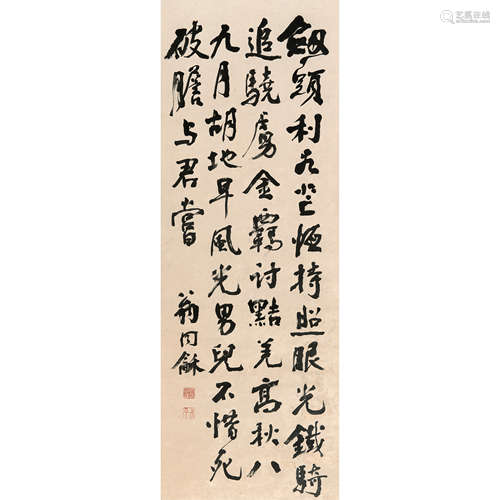 劒頭利如芒恒持照眼光鐵騎
追驍虜金羈討黠羌高秋八
九月胡地早風光男兒不惜死
破膽与君嘗
翁同龢